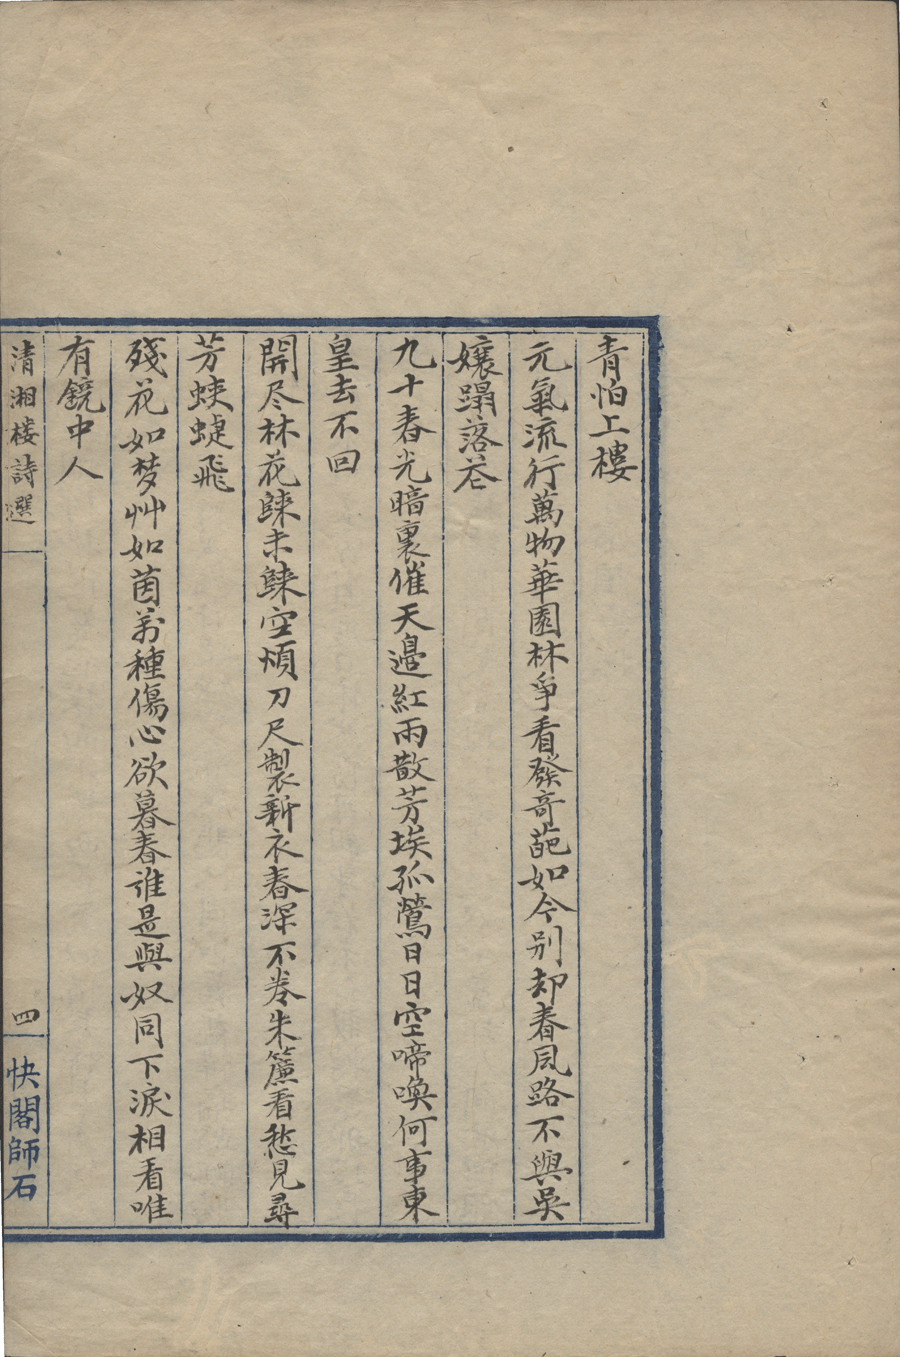 青怕上樓
元氣流行萬物華園林爭看發奇葩如今别却春风路不與吳
孃蹋落花
九十春光暗裏催天邉紅雨散芳埃孤鶯日日空啼喚何事東
皇去不回
開尽林花歸未歸空煩刀尺製新衣春深不卷朱簾看愁見尋
芳蛺蜨飛
殘花如梦艸如茵萬種傷心欲暮春誰是與奴同下淚相看唯
有鏡中人
清湘楼詩選
四
快閣師石